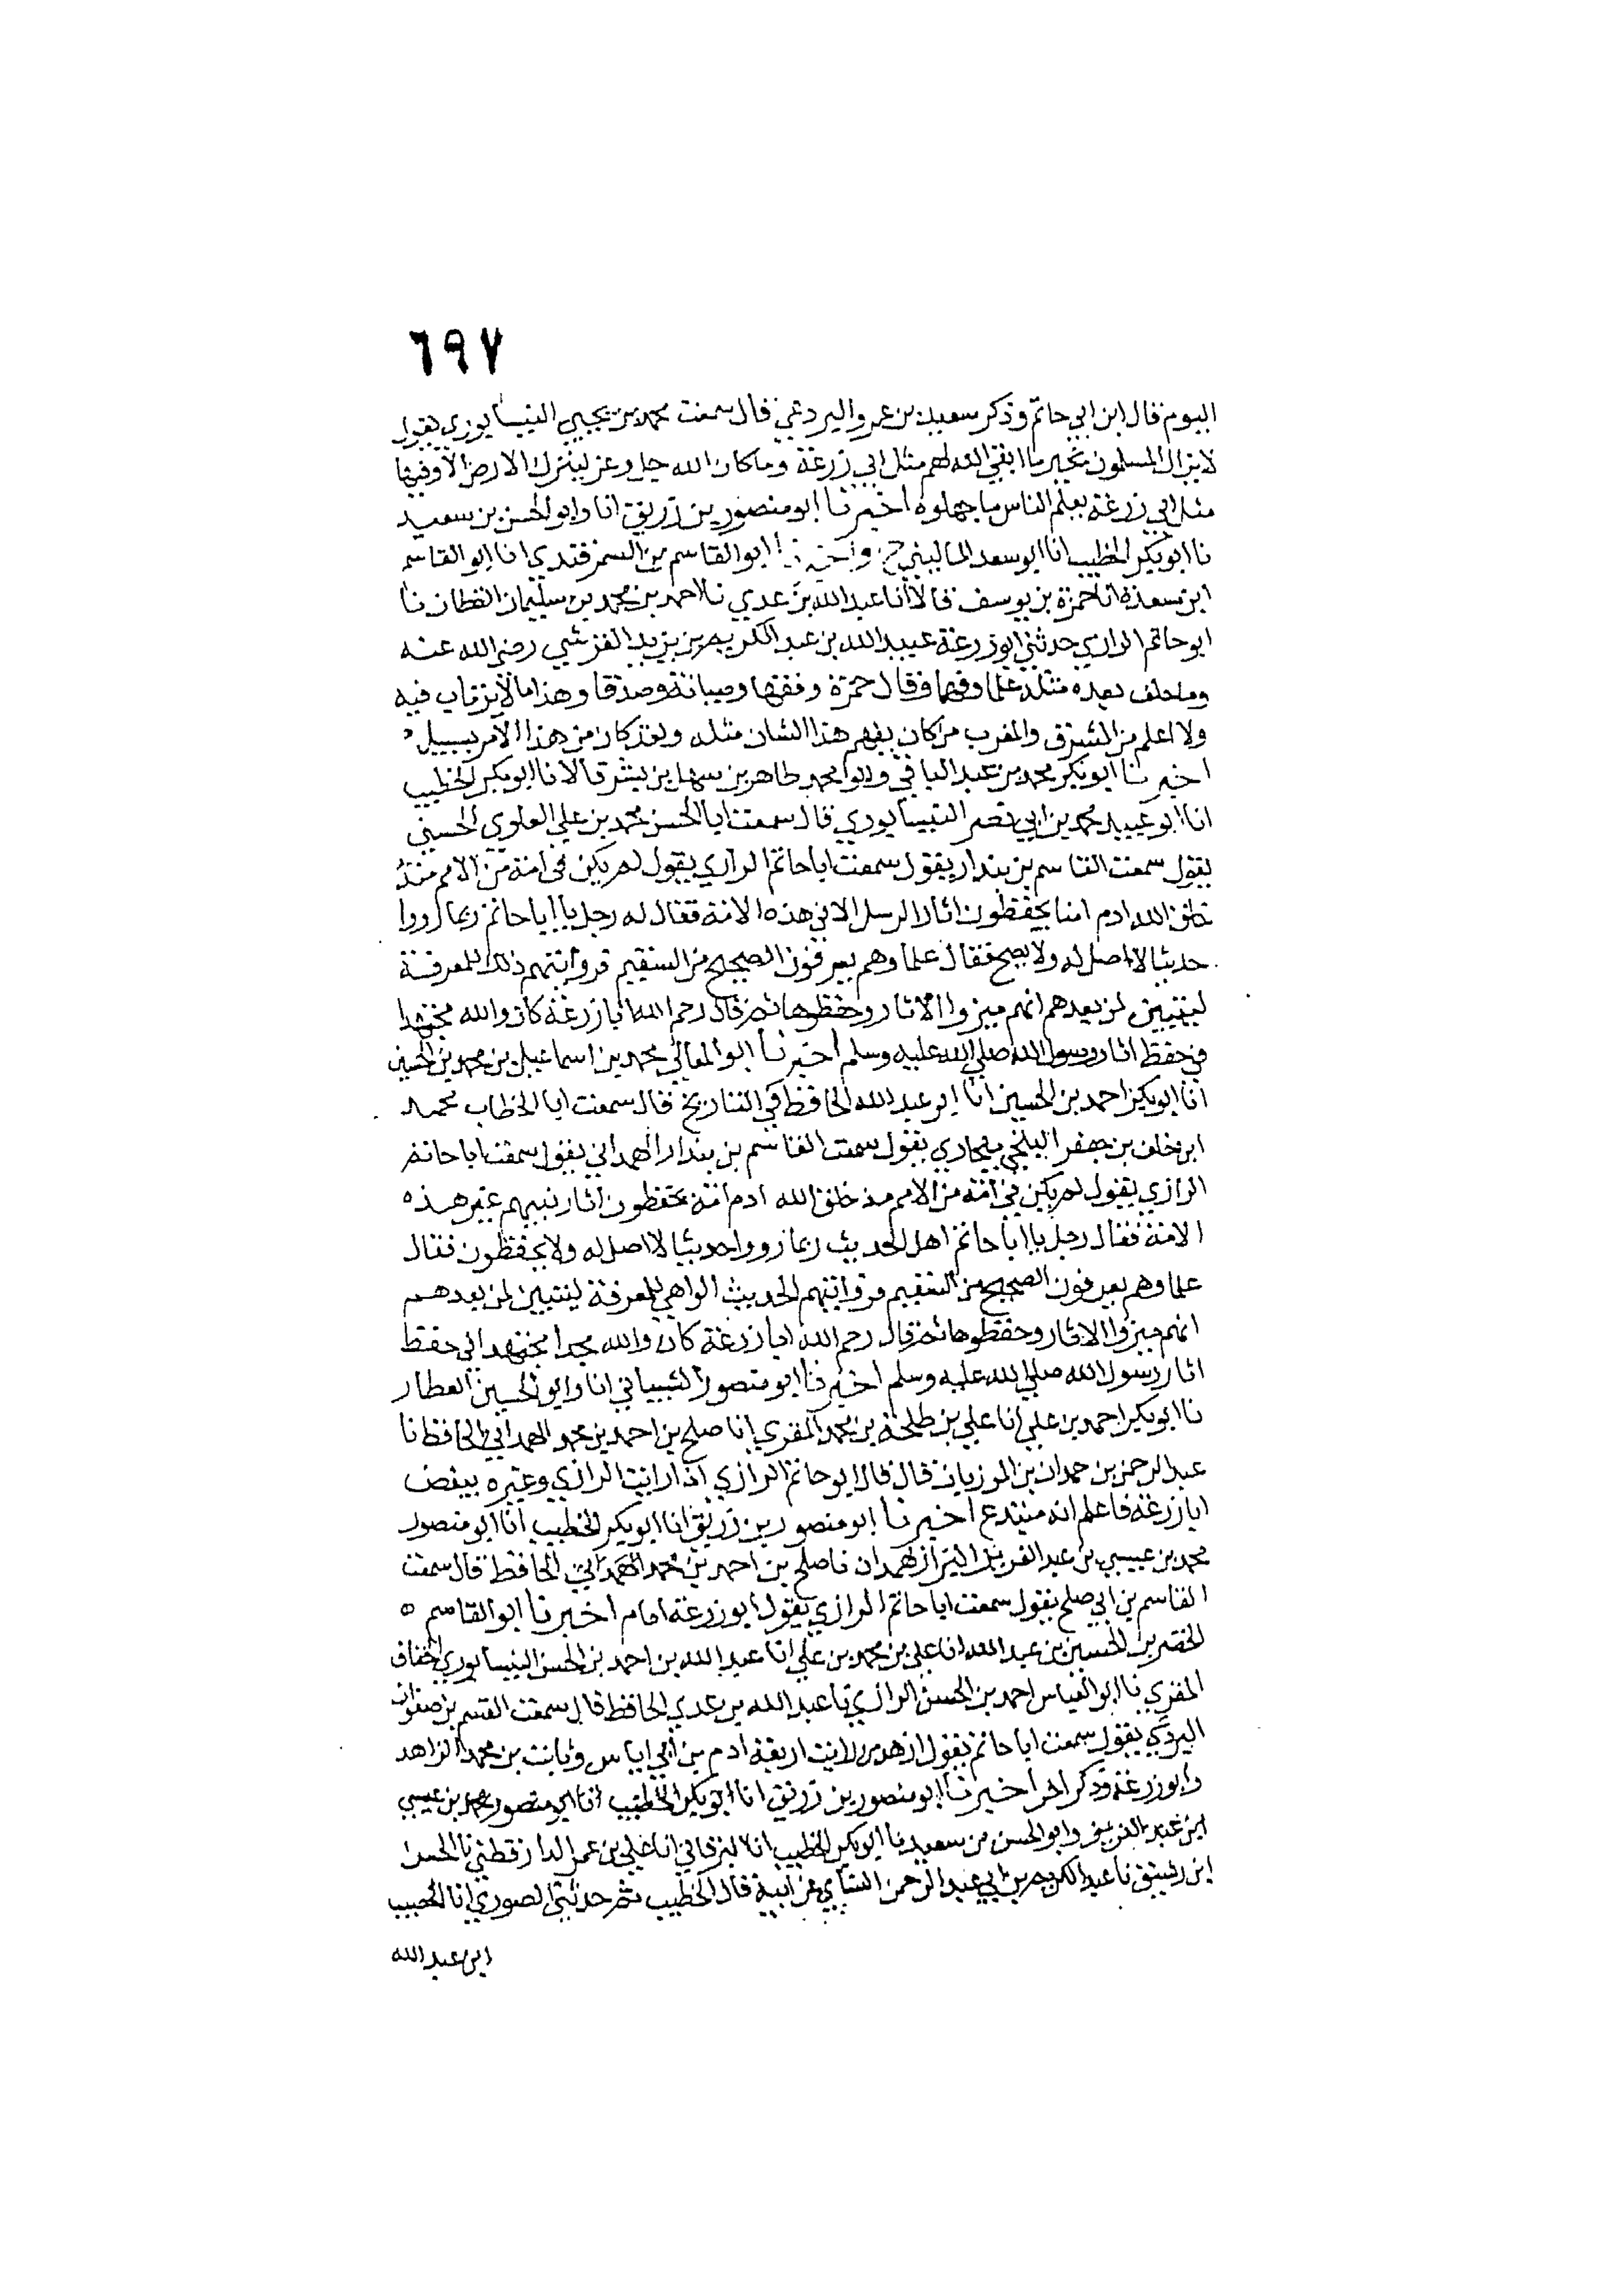 ٦٩٧
اليوم قال ابن ابي حاتم وذكر سعيد بن عمرو البردعي قال سمعت محمد بن يحيى النيسابوري يقول
لا يزال المسلمون بخير ما ابقي الله لهم مثل ابي زرعة وما كان الله جل وعز ليترك الارض الا وفيها
مثل ابي زرعة يعلم الناس ما جهلوه اخبرنا ابو منصور بن زريق انا وابو الحسن بن سعيد
نا ابو بكر الخطيب انا ابو سعد الماليني ح واخبرنا ابو القاسم بن السمرقندي انا ابو القاسم
ابن مسعدة انا حمزة بن يوسف قالا انا عبد الله بن عدي نا احمد بن محمد بن سليمان القطان نا
ابو حاتم الرازي حدثني ابو زرعة عبيد الله بن عبد الكريم بن يزيد القرشي رضي الله عنه
وما خلف بعده مثله علما وفهما وقال حمزة وفقها وصيانة وصدقا وهذا ما لا يرتاب فيه
ولا اعلم من المشرق والمغرب من كان يفهم هذا الشان مثله ولقد كان من هذا الامر بسبيل
اخبرنا ابو بكر محمد بن عبد الباقي وابو محمد طاهر بن سهل بن بشر قالا نا ابو بكر الخطيب
انا ابو عبيد محمد بن ابي نصر النيسابوري قال سمعت ابا الحسن محمد بن علي العلوي الحسيني
يقول سمعت القاسم بن بندار يقول سمعت ابا حاتم الرازي يقول لم يكن في امة من الامم منذ
خلق الله ادم امنا يحفظون اثار الرسل الا في هذه الامة فقال له رجل يا ابا حاتم ربما رووا
حديثا لا اصل له ولا يصح فقال علماوهم يعرفون الصحيح من السقيم فروايتهم ذلك للمعرفة
ليتبين لمن بعدهم انهم ميزوا الاثار وحفظوها ثم قال رحم الله ابا زرعة كان والله مجتهدا
في حفظ اثار رسول الله صلى الله عليه وسلم اخبرنا ابو المعالي محمد بن اسماعيل بن محمد بن الحسين
انا ابو بكر احمد بن الحسين انا ابو عبد الله الحافظ في التاريخ قال سمعت ابا الخطاب محمد
ابن خلف بن جعفر البلخي ببخاري يقول سمعت القاسم بن بندار الهمداني يقول سمعت ابا حاتم
الرازي يقول لم يكن في امة من الامم مذ خلق الله ادم امة يحفظون اثار نبيهم غير هذه
الامة فقال رجل يا ابا حاتم اهل الحديث ربما رووا حديثا لا اصل له ولا يحفظون فقال
علماوهم يعرفون الصحيح من السقيم فروايتهم الحديث الواهي للمعرفة ليتبين لمن بعدهم
انهم ميزوا الاثار وحفظوها ثم قال رحم الله ابا زرعة كان والله مجدا مجتهدا في حفظ
اثار رسول الله صلى الله عليه وسلم اخبرنا ابو منصور الشيباني انا وابو الحسين العطار
نا ابو بكر احمد بن علي انا علي بن طلحة بن محمد المقري انا صلح بن احمد بن محمد الهمداني الحافظ نا
عبد الرحمن بن حمدان بن المرزبان قال قال ابو حاتم الرازي اذا رايت الرازي وغيره يبغض
ابا زرعة فاعلم انه مبتدع اخبرنا ابو منصور بن زريق انا ابو بكر الخطيب انا ابو منصور
محمد بن عيسى بن عبد العزيز البزاز بهمدان نا صلح بن احمد بن محمد الهمداني الحافظ قال سمعت
القاسم بن ابي صلح يقول سمعت ابا حاتم الرازي يقول ابو زرعة امام اخبرنا ابو القاسم
الخضر بن الحسين بن عبد الله انا علي بن محمد بن علي انا عبد الله بن احمد بن الحسن النيسابوري الخفاف
المقري نا ابو العباس احمد بن الحسن الرازي نا عبد الله بن عدي الحافظ قال سمعت القسم بن صفوان
البردعي يقول سمعت ابا حاتم يقول ازهد من رايت اربعة ادم بن ابي اياس وثابت بن محمد الزاهد
وابو زرعة وذكر اخر اخبرنا ابو منصور بن زريق انا ابو بكر الخطيب انا ابو منصور محمد بن عيسى
ابن عبد العزيز وابو الحسن بن سعيد نا ابو بكر الخطيب انا البرقاني انا علي بن عمر الدارقطني نا الحسن
ابن رشيق نا عبد الكريم بن ابي عبد الرحمن النساي عن ابيه قال الخطيب ثم حدثني الصوري انا الخصيب
ابن عبد الله